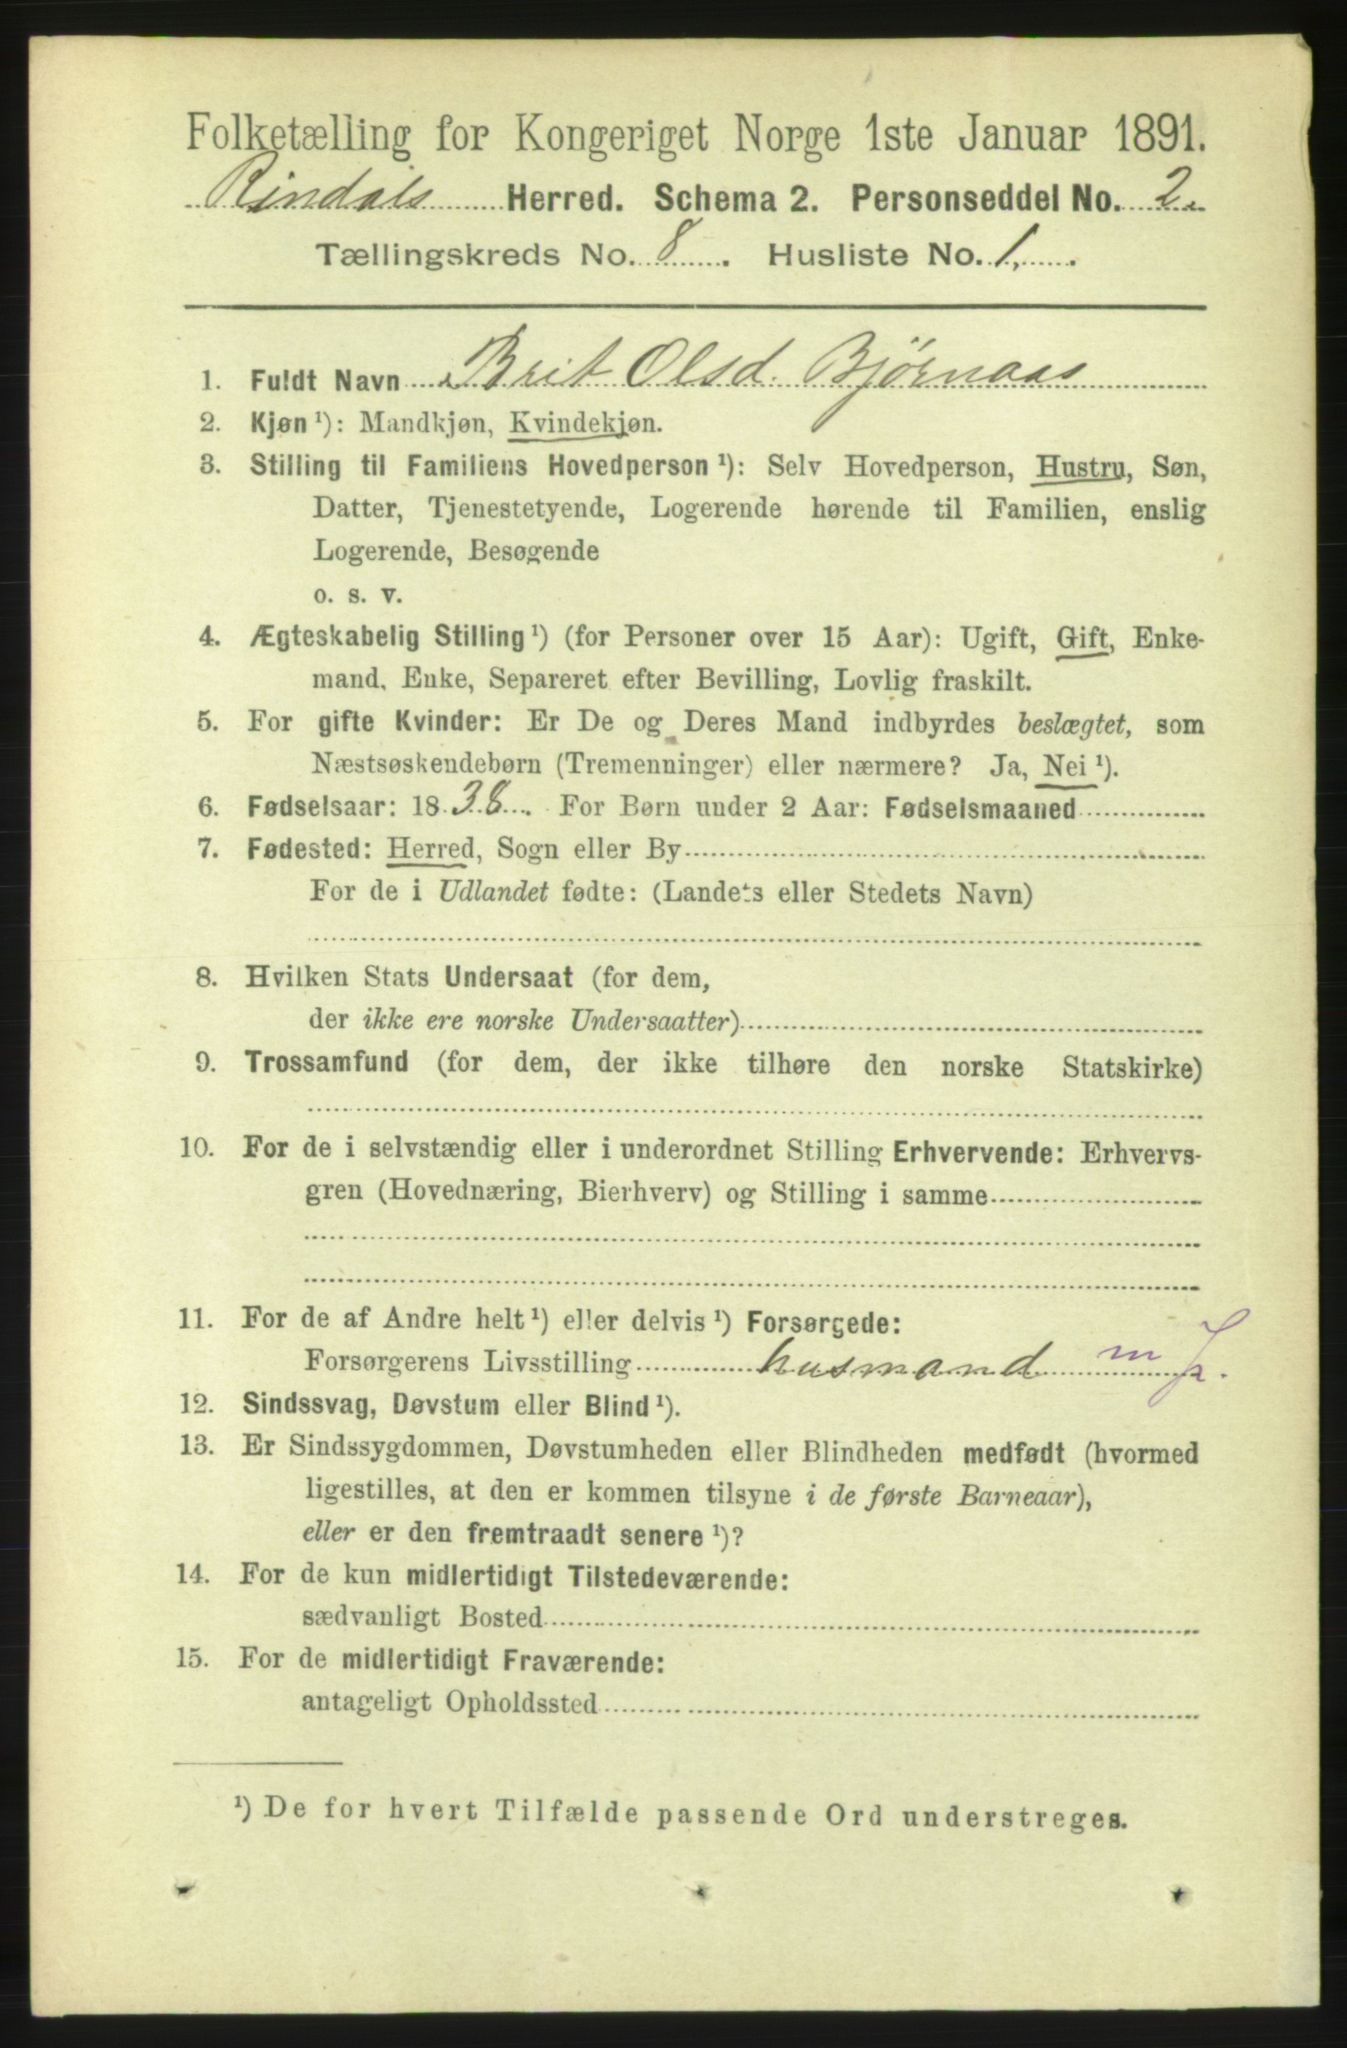 Folketælling for Kongeriget Norge 1ste Januar 1891.
Rindals Herred. Schema 2. Personseddel No. 2.
Tællingskreds No. 8. Husliste No. 1.
1. Fuldt Navn Brit Olsd. Bjørnaas
2. Kjøn ¹): Mandkjøn, Kvindekjøn.
3. Stilling til Familiens Hovedperson ¹): Selv Hovedperson, Hustru, Søn,
Datter, Tjenestetyende, Logerende hørende til Familien, enslig
Logerende, Besøgende
o. s. v.
4. Ægteskabelig Stilling ¹) (for Personer over 15 Aar): Ugift, Gift, Enke-
mand, Enke, Separeret efter Bevilling, Lovlig fraskilt.
5. For gifte Kvinder: Er De og Deres Mand indbyrdes beslægtet, som
Næstsøskendebørn (Tremenninger) eller nærmere? Ja, Nei ¹).
6. Fødselsaar: 1838. For Børn under 2 Aar: Fødselsmaaned
7. Fødested: Herred, Sogn eller By
For de i Udlandet fødte: (Landets eller Stedets Navn)
8. Hvilken Stats Undersaat (for dem,
der ikke ere norske Undersaatter)
9. Trossamfund (for dem, der ikke tilhøre den norske Statskirke)
10. For de i selvstændig eller i underordnet Stilling Erhvervende: Erhvervs-
gren (Hovednæring, Bierhverv) og Stilling i samme
11. For de af Andre helt ¹) eller delvis ¹) Forsørgede:
Forsørgerens Livsstilling husmand m J.
12. Sindssvag, Døvstum eller Blind ¹).
13. Er Sindssygdommen, Døvstumheden eller Blindheden medfødt (hvormed
ligestilles, at den er kommen tilsyne i de første Barneaar),
eller er den fremtraadt senere ¹)?
14. For de kun midlertidigt Tilstedeværende:
sædvanligt Bosted
15. For de midlertidigt Fraværende:
antageligt Opholdssted
¹) De for hvert Tilfælde passende Ord understreges.